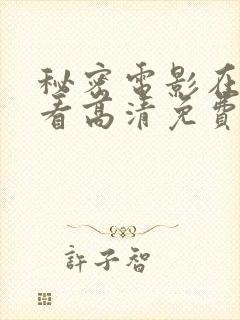 秘密電影在
看高清免費
許子智